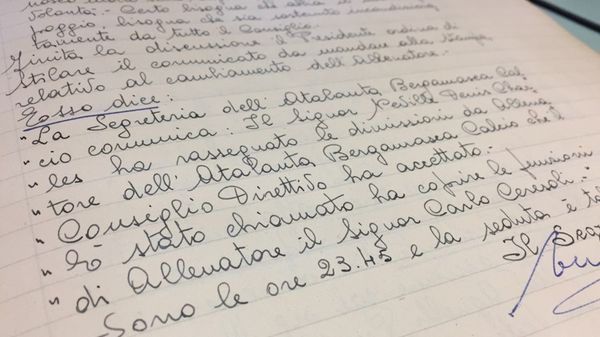 volontà. Certo bisogna che abbia il
poggio, bisogna che sia sostenuto
tamente da tutto il Consiglio.
Finita la discussione il Presidente ordina di
stilare il comunicato da mandare alla Stampa
relativo al cambiamento dell'Allenatore.
Esso dice:
"La Segreteria dell'Atalanta Bergamasca Cal-
"cio comunica: Il Signor Neville Denis Char-
"les ha rassegnato le dimissioni da Allena-
"tore dell'Atalanta Bergamasca Calcio che il
"Consiglio Direttivo ha accettato.-
"È stato chiamato ha coprire le funzioni
"di Allenatore il Signor Carlo Ceresoli.-
Sono le ore 23.45 e la seduta è
Il